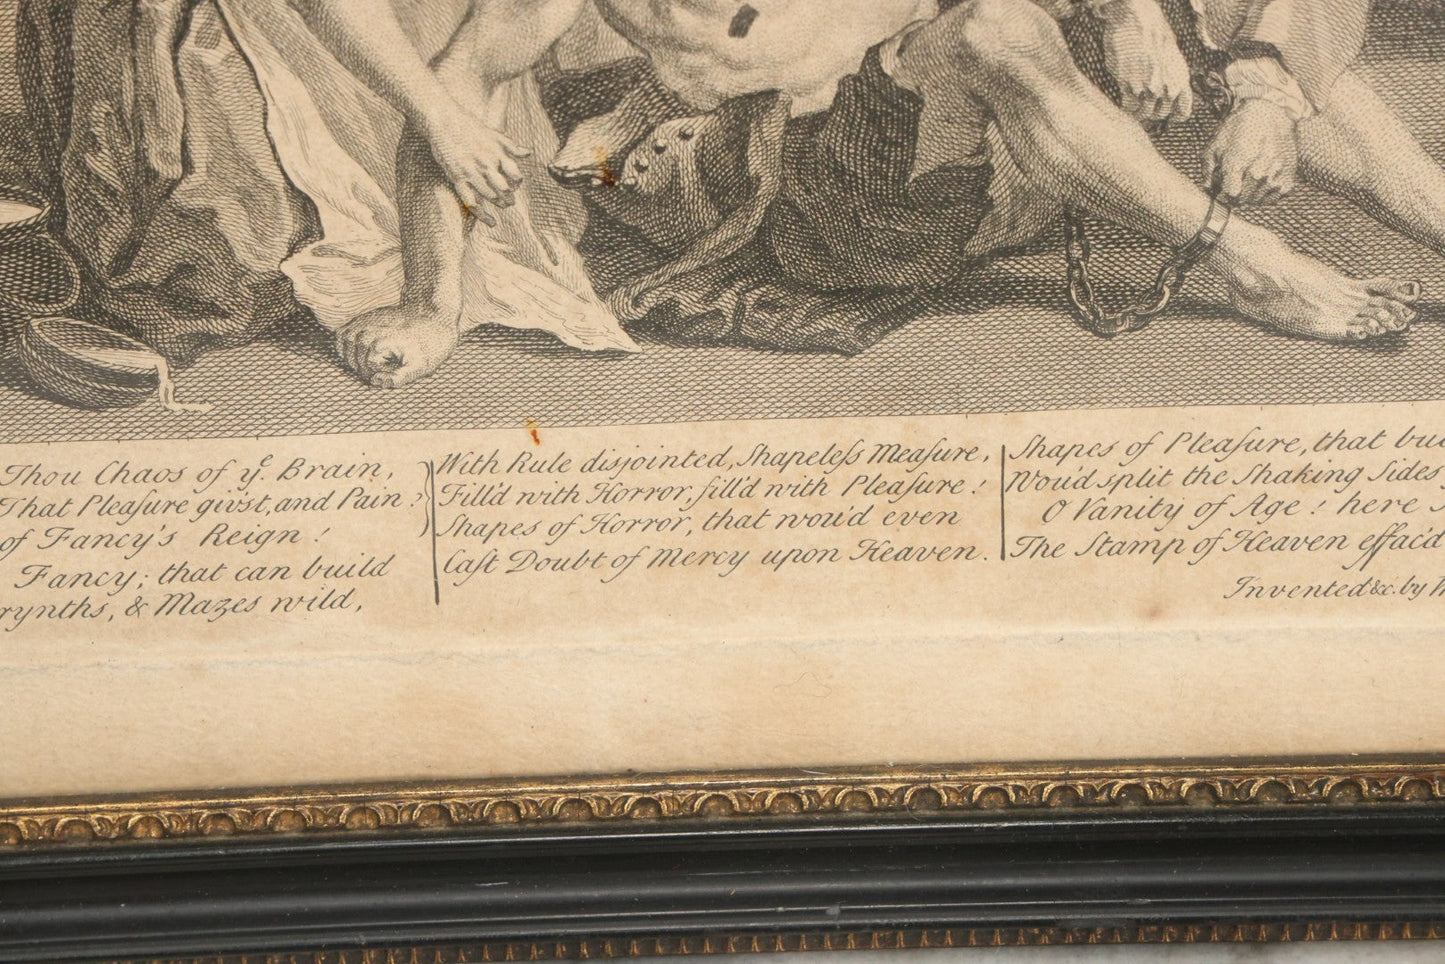 Thou Chaos of yᵉ Brain,
That Pleaſure giv'st, and Pain?
of Fancy's Reign!
Fancy; that can build
rynths, & Mazes wild,
With Rule disjointed, Shapeleſs Meaſure,
Fill'd with Horror, fill'd with Pleaſure!
Shapes of Horror, that wou'd even
Caſt Doubt of Mercy upon Heaven.
Shapes of Pleaſure, that
Wou'd split the Shaking Sides
O Vanity of Age! here
The Stamp of Heaven effac'd
Invented &c. by W